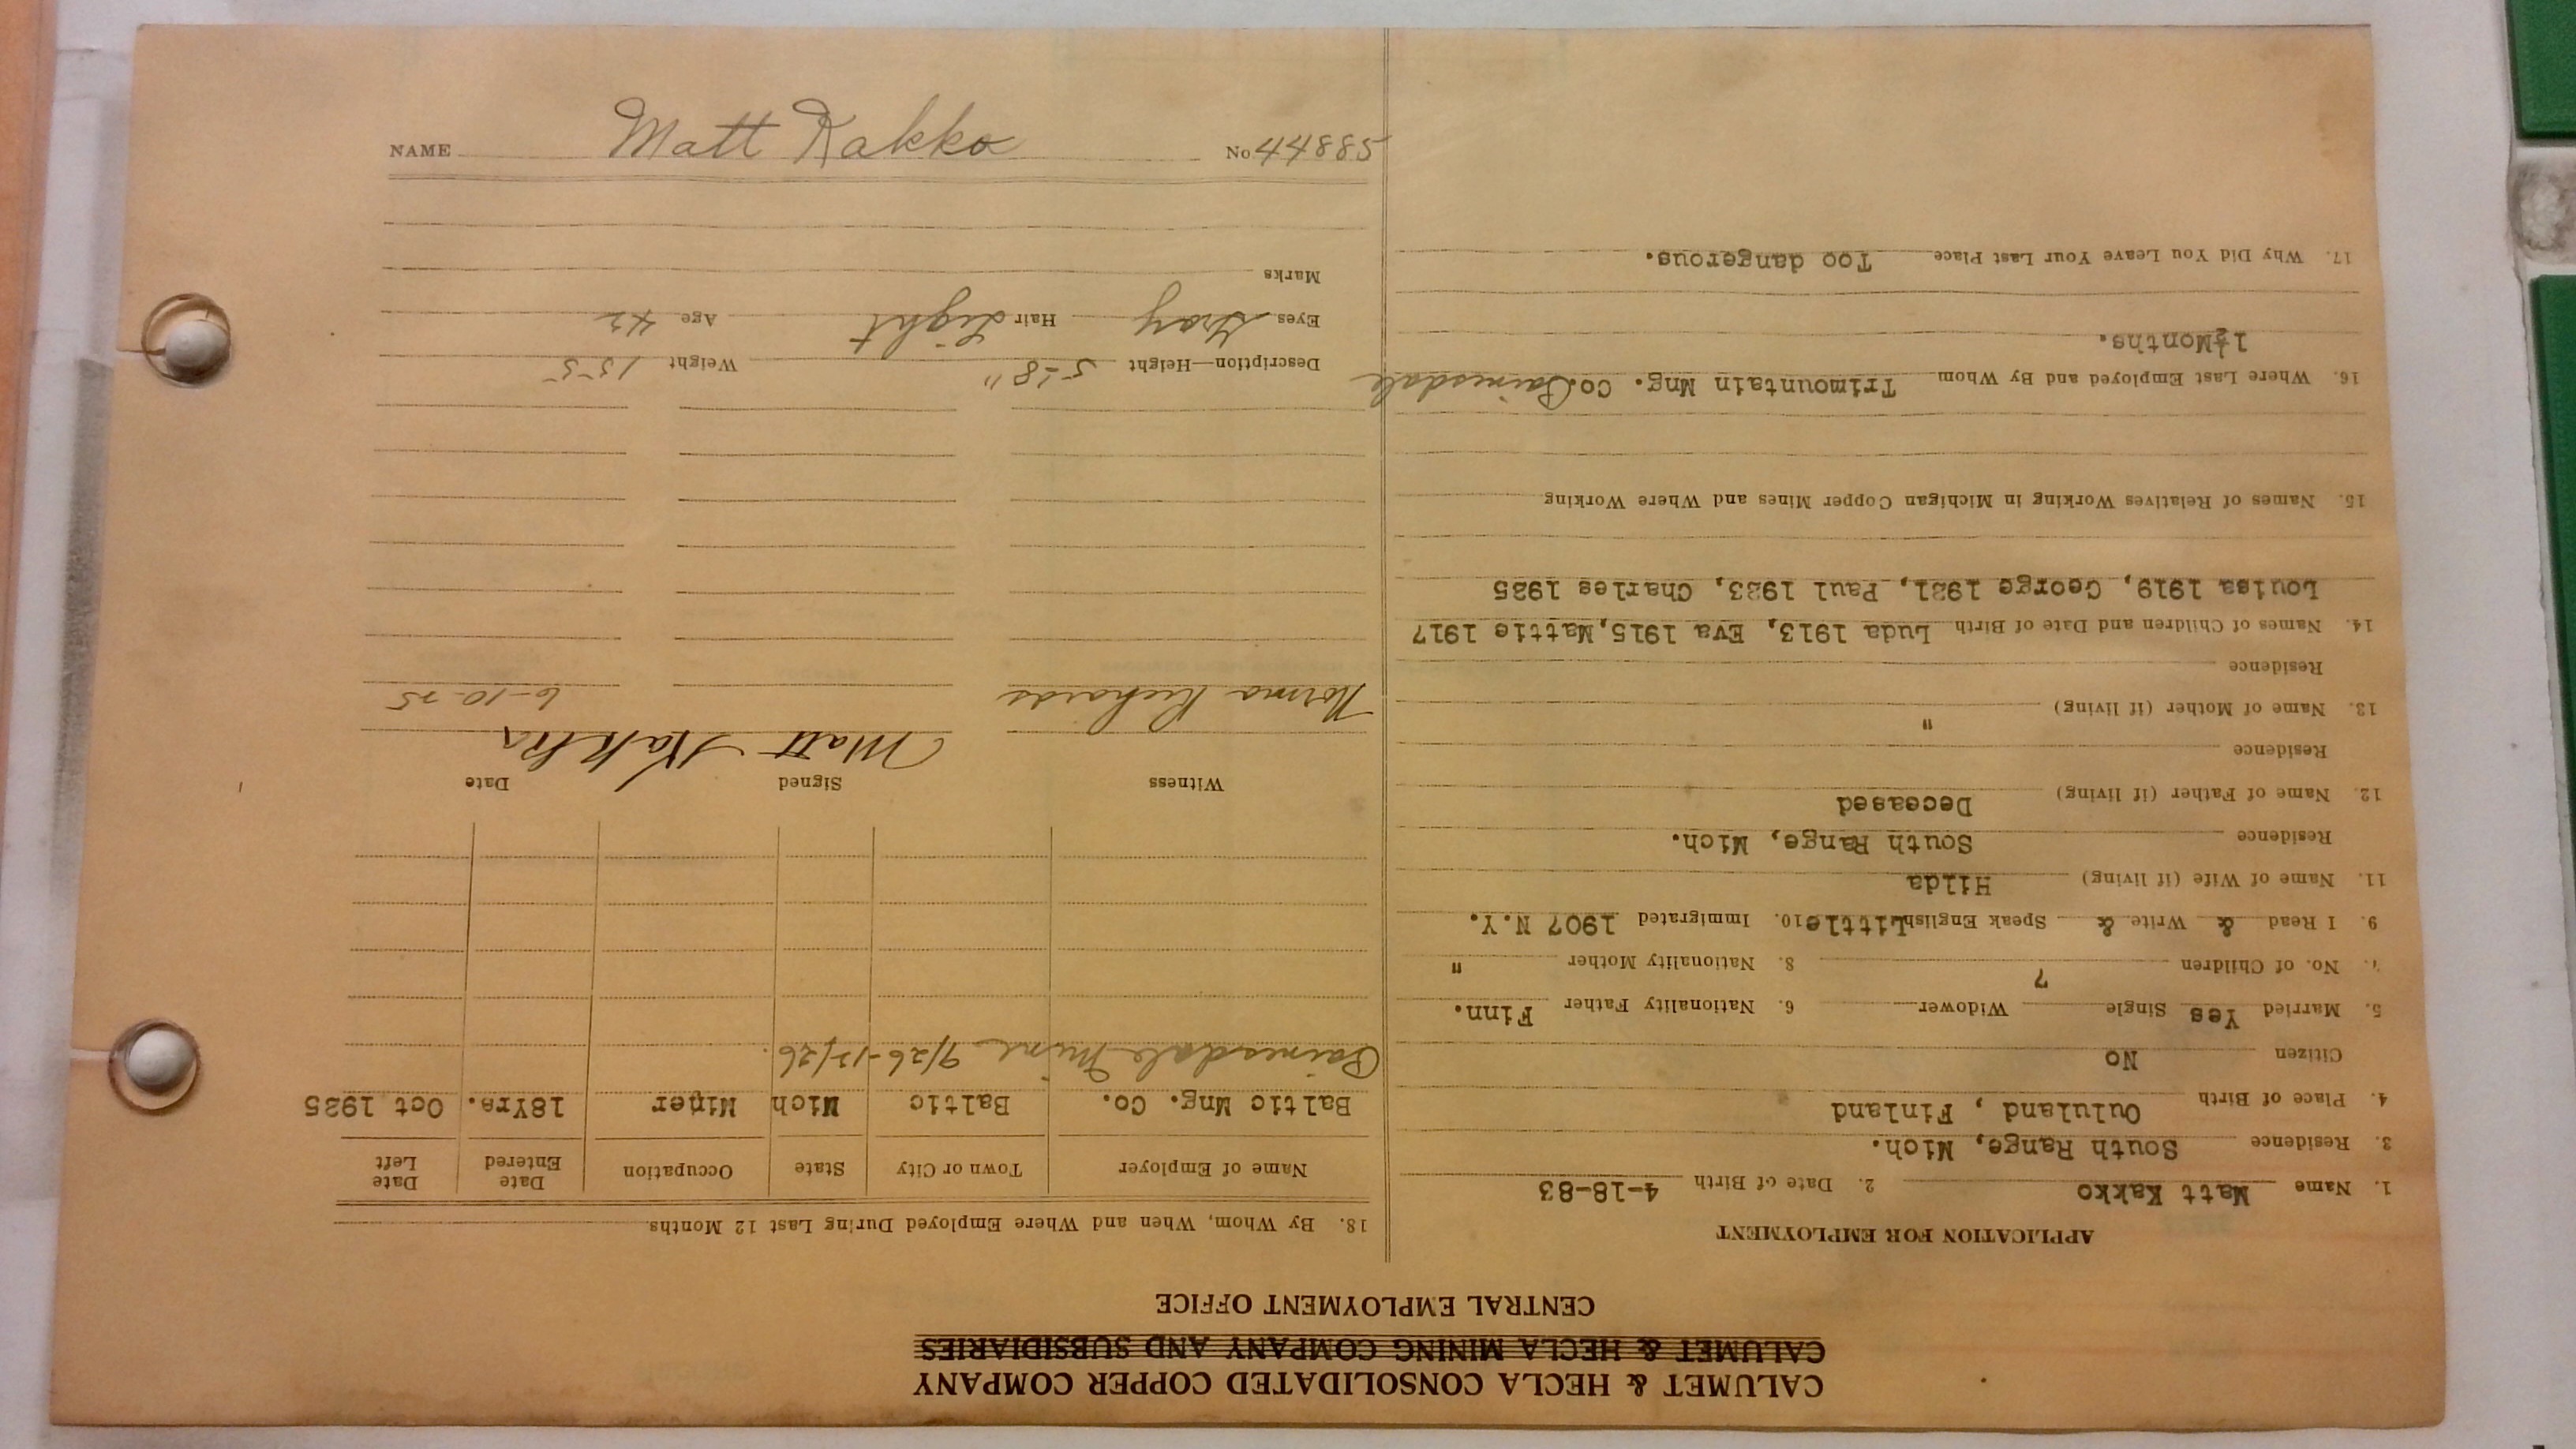 CALUMET & HECLA CONSOLIDATED COPPER COMPANY
CALUMET & HECLA MINING COMPANY AND SUBSIDIARIES
CENTRAL EMPLOYMENT OFFICE
APPLICATION FOR EMPLOYMENT
1. Name Matt Kakko 2. Date of Birth 4-18-83
3. Residence South Range, Mich.
4. Place of Birth Oululand , Finland
Citizen No
5. Married Yes Single Widower 6. Nationality Father Finn.
7. No. of Children 7 8. Nationality Mother "
9. I Read & Write & Speak English Little 10. Immigrated 1907 N.Y.
11. Name of Wife (if living) Hilda
Residence South Range, Mich.
12. Name of Father (if living) Deceased
Residence
13. Name of Mother (if living) "
Residence
14. Names of Children and Date of Birth Luda 1913, Eva 1915, Mattie 1917
Louisa 1919, George 1921, Paul 1923, Charles 1925
15. Names of Relatives Working in Michigan Copper Mines and Where Working
16. Where Last Employed and By Whom Trimountain Mng. Co. Painesdale
1½Months.
17. Why Did You Leave Your Last Place Too dangerous.
18. By Whom, When and Where Employed During Last 12 Months
Name of Employer Town or City State Occupation Date Entered Date Left
Baltic Mng. Co. Baltic Mich Miner 18Yrs. Oct 1925
Painesdale Mine 9/26-12/26.
Witness Signed Date
Matt Kakko
Norma Richards 6-10-25
Description—Height 5-8" Weight 155
Eyes Gray Hair Light Age 42
Marks
NAME Matt Kakko No 44885